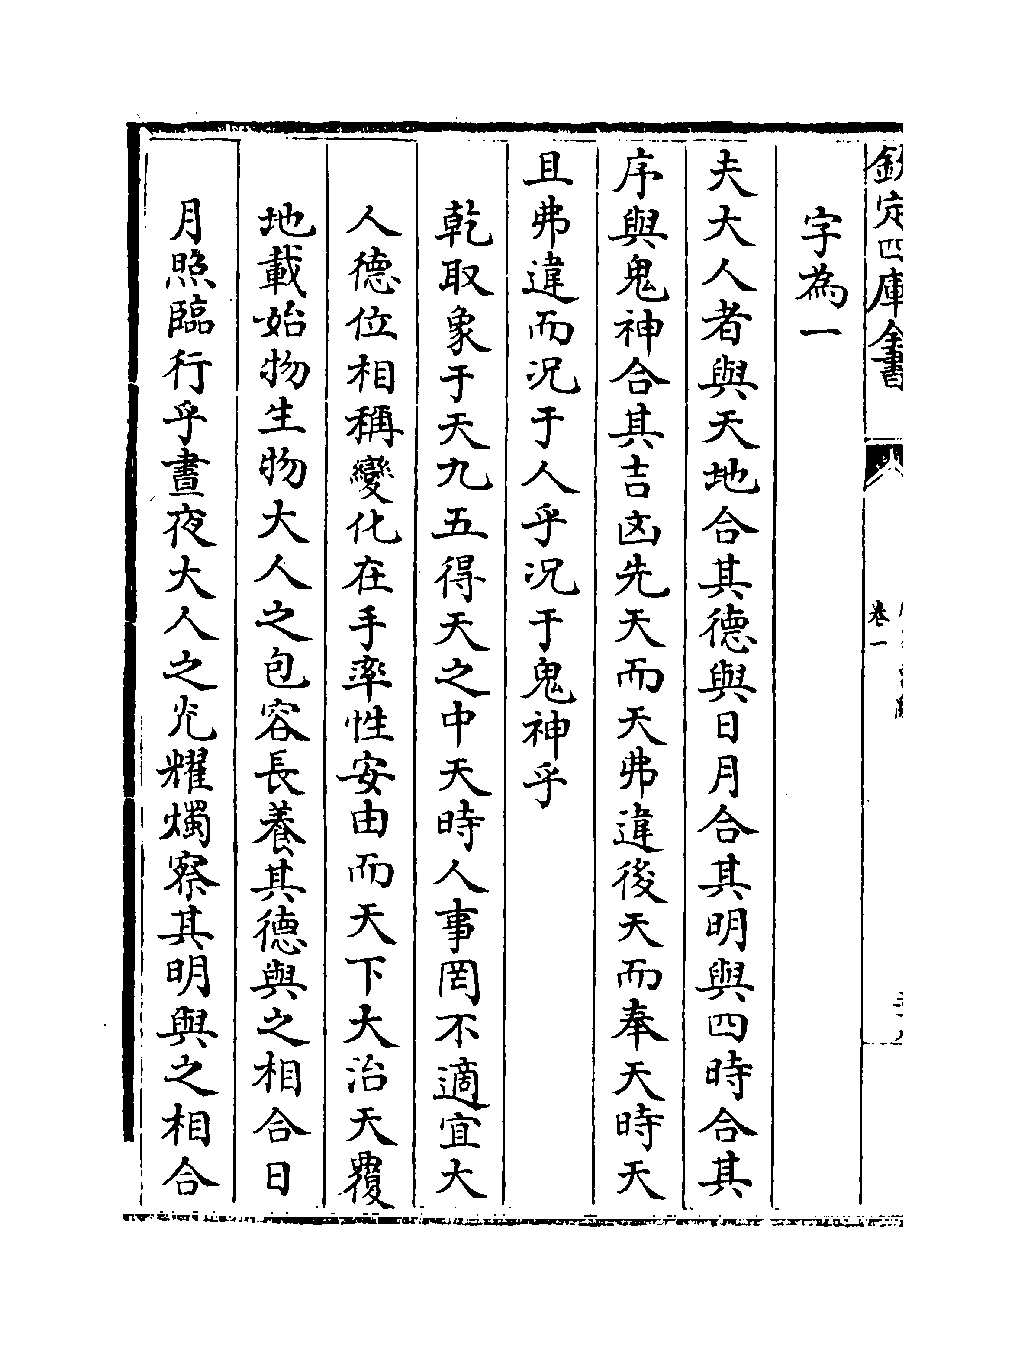 欽定四庫全書
卷一
字為一
夫大人者與天地合其德與日月合其明與四時合其
序與鬼神合其吉凶先天而天弗違後天而奉天時天
且弗違而況于人乎況于鬼神乎
乾取象于天九五得天之中天時人事罔不適宜大
人德位相稱變化在手率性安由而天下大治天覆
地載始物生物大人之包容長養其德與之相合日
月照臨行乎晝夜大人之光耀燭察其明與之相合